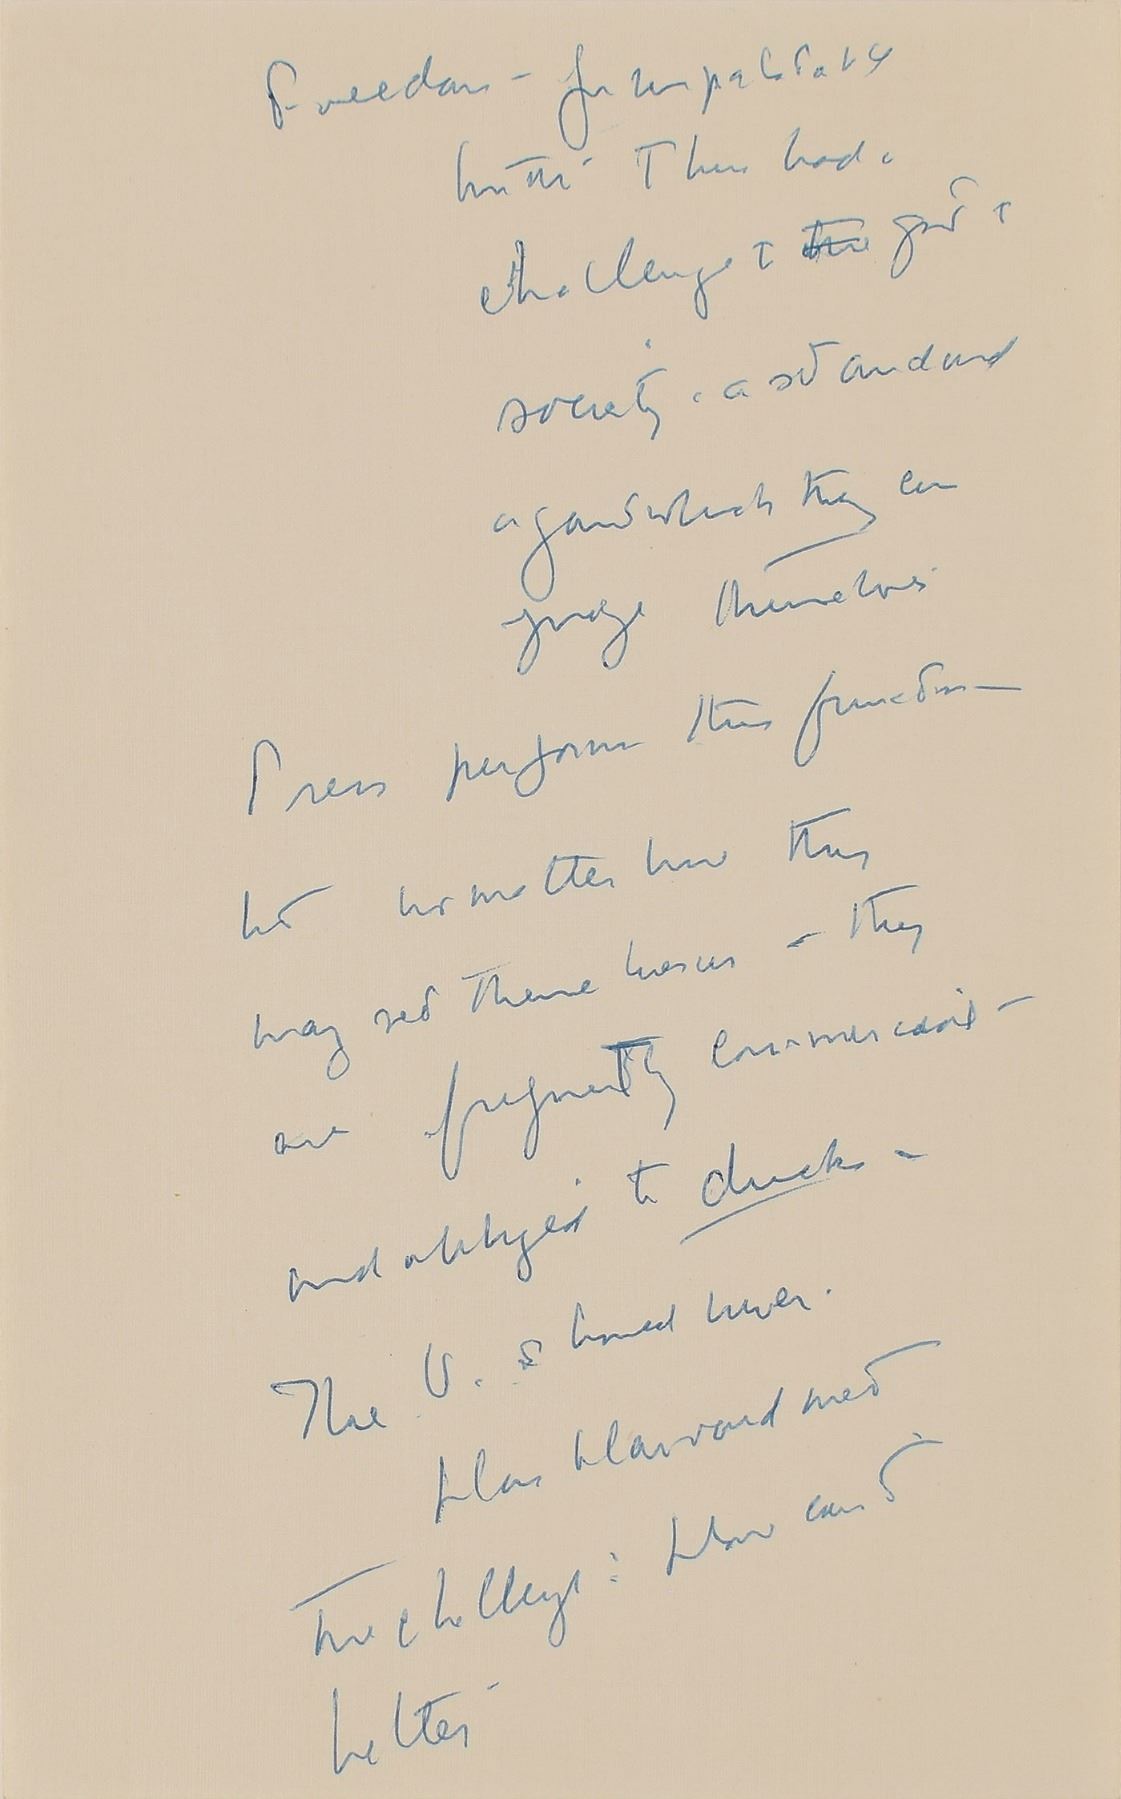 Freedom -
but this had.
challenge to the gov't
society. a standard
against which they can
judge themselves
Press perform this function
but no matter how they
may see themselves - they
are frequently commercial -
and obliged to duck -
The U. should never.
Has Harvard met
the challenge: How can it
better -